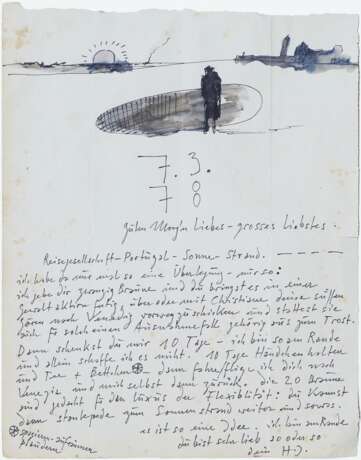 7. 3.
78
guten Morgen liebes - grosses liebstes.
Reisegesellschaft - Portugal - Sonne - Strand. - - - -
ich habe da nur mal so eine Überlegung - nur so:
ich gebe dir zwanzig Braune und du bringst es in einer
fertig, über oder mit Christiane deine süssen
Gören nach Venedig vorwegzuschicken und stattest sie
auch für solch einen Ausnahmefall gehörig aus zum Trost.
Dann schenkst du mir 10 Tage - ich bin so am Rande
und allein schaffe ich es nicht. 10 Tage Händchen halten
und Tee + Bettchen dann ich dich nach
Venezia und mich selbst dann zurück. die 20 Braune
sind gedacht für den Luxus der Flexibilität: du kannst
dann zum Sonnenstrand weiter und sowas.
es ist so eine Idee. ich bin am Rande
du bist sehr lieb so oder so
dein HJ.
plaudern